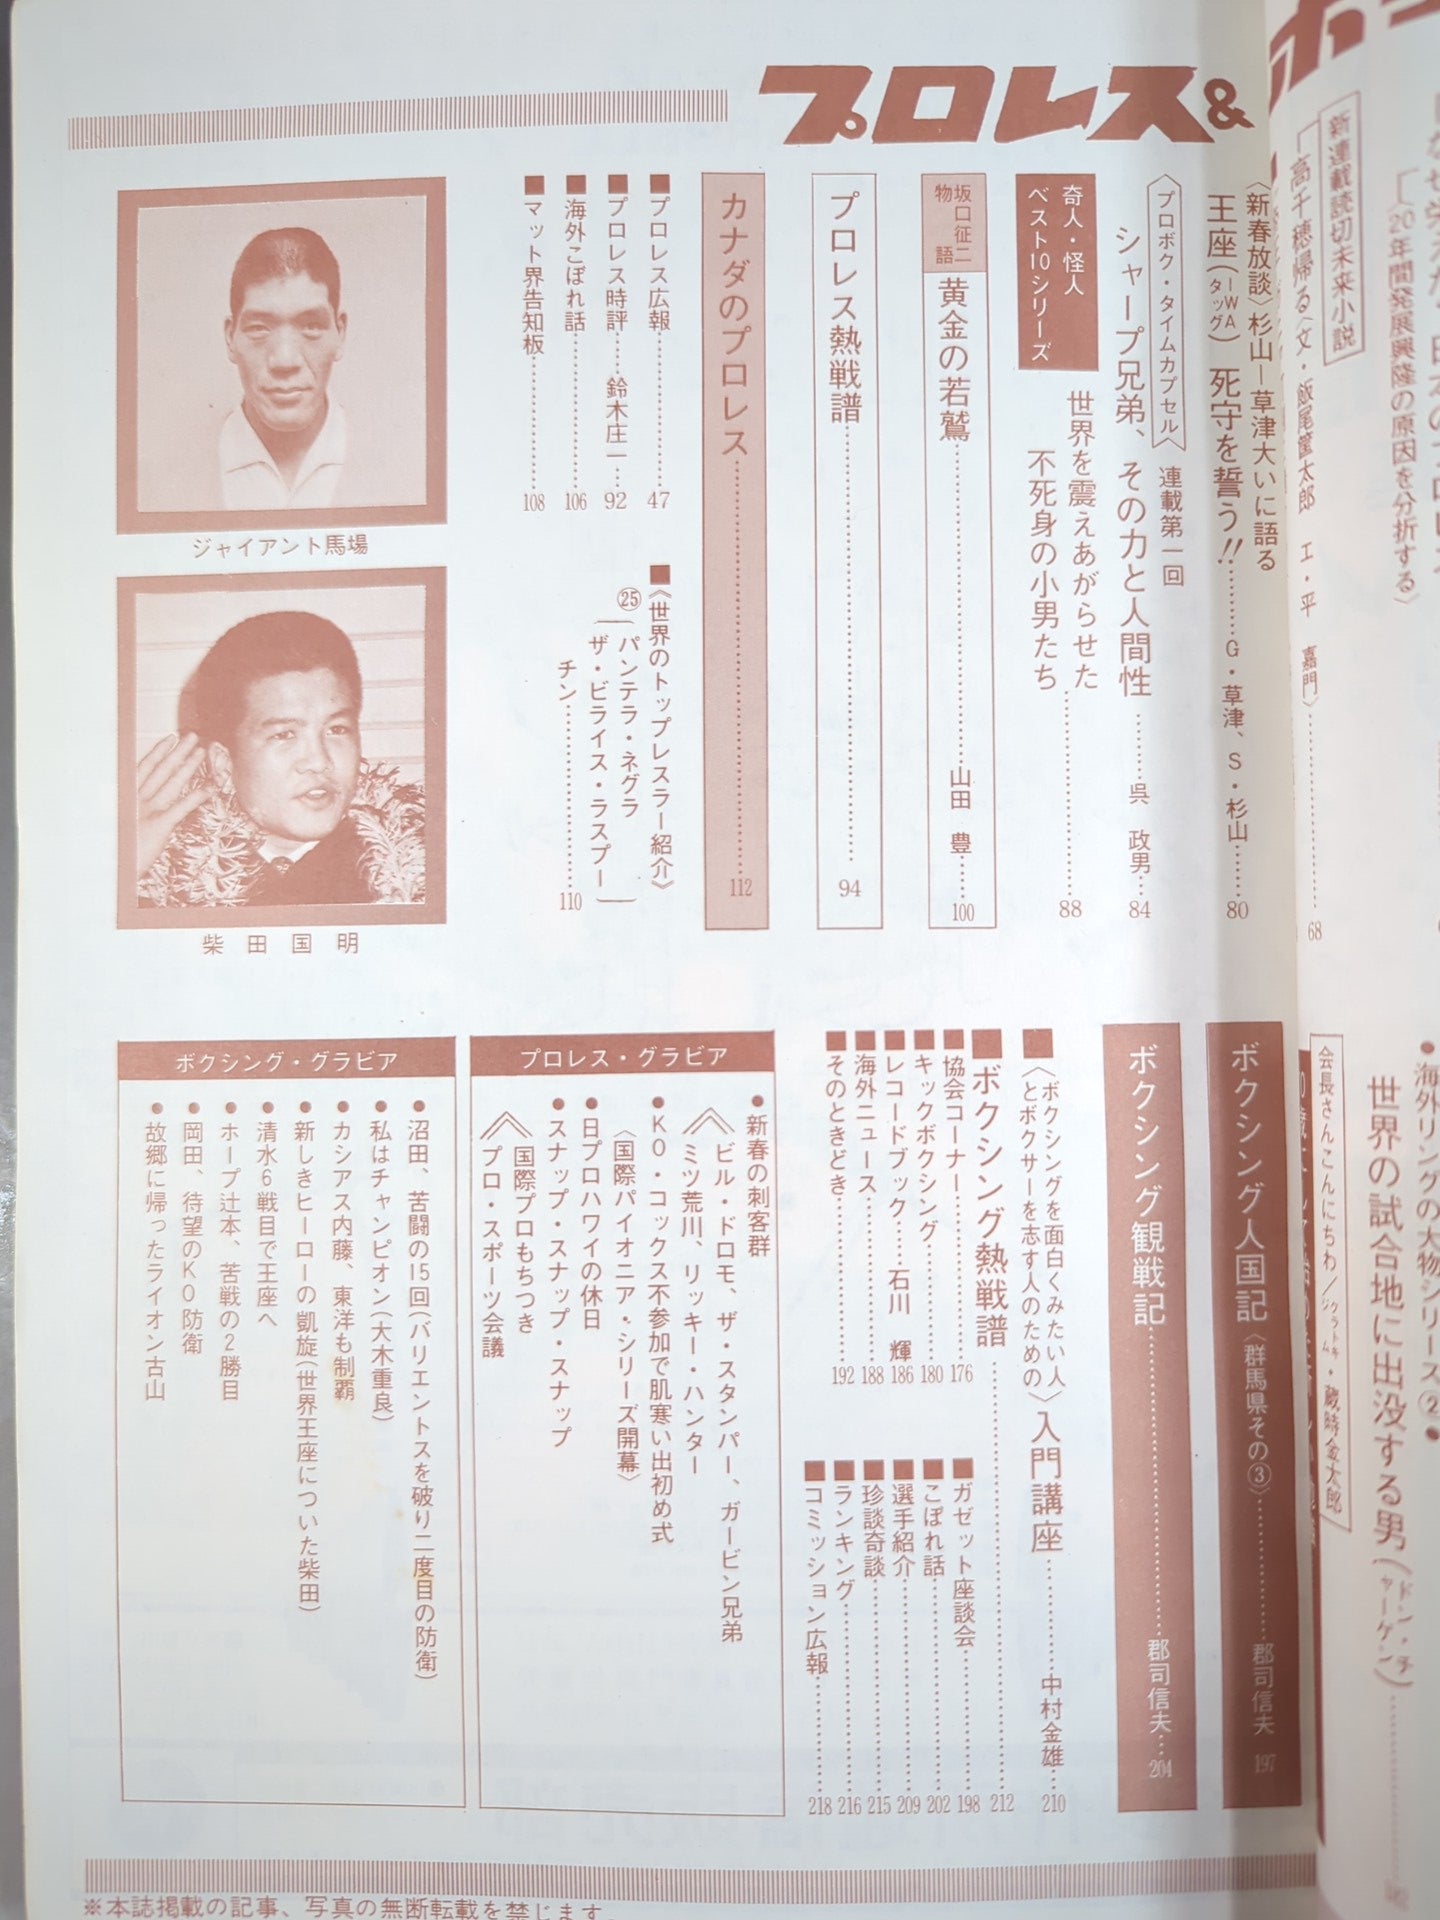 プロレス&
新連載読切未来小説
「高千穂帰る〈文・飯尾篁太郎 エ・平 嘉門〉 68
〔20年間発展興隆の原因を分折する〉
〈新春放談〉杉山―草津大いに語る
王座(IWAタッグ) 死守を誓う!! G・草津、S・杉山 80
プロボク・タイムカプセル 連載第一回
シャープ兄弟、その力と人間性 呉 政男 84
奇人・怪人
ベスト10シリーズ
世界を震えあがらせた
不死身の小男たち 88
坂口征二物語 黄金の若鷲 山田 豊 100
プロレス熱戦譜 94
カナダのプロレス 112
■プロレス広報 47
■プロレス時評 鈴木庄一 92
■海外こぼれ話 106
■マット界告知板 108
■《世界のトップレスラー紹介》
㉕(パンテラ・ネグラ
ザ・ビライス・ラスプー
チン) 110
ジャイアント馬場
柴田国明
●海外リングの大物シリーズ②●
世界の試合地に出没する男(ドン・チャーゲン)
会長さんこんにちわ
ボクシング人国記〈群馬県その③〉 郡司信夫 197
ボクシング観戦記 郡司信夫 204
■〈ボクシングを面白くみたい人
とボクサーを志す人のための〉入門講座 中村金雄 210
■ボクシング熱戦譜 212
■協会コーナー 176
■キックボクシング 180
■レコードブック 石川 輝 186
■海外ニュース 188
■そのときどき 192
■ガゼット座談会 198
■こぼれ話 202
■選手紹介 209
■珍談奇談 215
■ランキング 216
■コミッション広報 218
プロレス・グラビア
●新春の刺客群
《ビル・ドロモ、ザ・スタンパー、ガービン兄弟
ミツ荒川、リッキー・ハンター
●KO・コックス不参加で肌寒い出初め式
〈国際パイオニア・シリーズ開幕〉
●日プロハワイの休日
●スナップ・スナップ・スナップ
《国際プロもちつき
プロ・スポーツ会議
ボクシング・グラビア
●沼田、苦闘の15回(バリエントスを破り二度目の防衛)
●私はチャンピオン(大木重良)
●カシアス内藤、東洋も制覇
●新しきヒーローの凱旋(世界王座についた柴田)
●清水6戦目で王座へ
●ホープ辻本、苦戦の2勝目
●岡田、待望のKO防衛
●故郷に帰ったライオン古山
※本誌掲載の記事、写真の無断転載を禁じます。